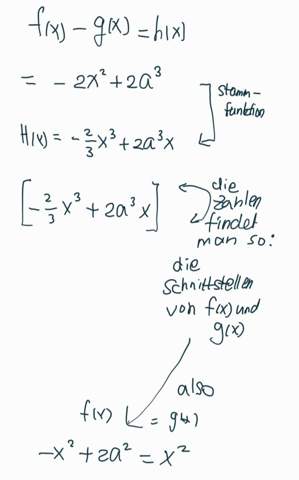 f(x) - g(x) = h(x)
= - 2x² + 2a³
Stamm-
funktion
H(x) = - 2/3 x³ + 2a³x
[- 2/3 x³ + 2a³x]
die
Zahlen
findet
man so:
die
Schnittstellen
von f(x) und
g(x)
also
f(x) = g(x)
-x² + 2a² = x²